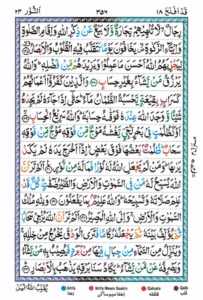 قَدْ اَفْلَحَ ١٨ ٣٥٦ اَلنُّوْر ٢٤
رِجَالٌ لَّا تُلْهِيْهِمْ تِجَارَةٌ وَّلَا بَيْعٌ عَنْ ذِكْرِ اللّٰهِ وَاِقَامِ الصَّلٰوةِ
وَاِيْتَآءِ الزَّكٰوةِ يَخَافُوْنَ يَوْمًا تَتَقَلَّبُ فِيْهِ الْقُلُوْبُ وَالْاَبْصَارُ
لِيَجْزِيَهُمُ اللّٰهُ اَحْسَنَ مَا عَمِلُوْا وَيَزِيْدَهُمْ مِّنْ فَضْلِهٖ وَاللّٰهُ
يَرْزُقُ مَنْ يَّشَآءُ بِغَيْرِ حِسَابٍ وَالَّذِيْنَ كَفَرُوْۤا اَعْمَالُهُمْ
كَسَرَابٍۭ بِقِيْعَةٍ يَّحْسَبُهُ الظَّمْاٰنُ مَآءً حَتّٰۤى اِذَا جَآءَهٗ لَمْ يَجِدْهُ
شَيْئًا وَّوَجَدَ اللّٰهَ عِنْدَهٗ فَوَفّٰىهُ حِسَابَهٗ وَاللّٰهُ سَرِيْعُ الْحِسَابِ
اَوْ كَظُلُمٰتٍ فِيْ بَحْرٍ لُّجِّيٍّ يَّغْشٰىهُ مَوْجٌ مِّنْ فَوْقِهٖ مَوْجٌ مِّنْ فَوْقِهٖ
سَحَابٌ ظُلُمٰتٌۢ بَعْضُهَا فَوْقَ بَعْضٍ اِذَاۤ اَخْرَجَ يَدَهٗ لَمْ يَكَدْ
يَرٰىهَا وَمَنْ لَّمْ يَجْعَلِ اللّٰهُ لَهٗ نُوْرًا فَمَا لَهٗ مِنْ نُّوْرٍ اَلَمْ تَرَ
اَنَّ اللّٰهَ يُسَبِّحُ لَهٗ مَنْ فِي السَّمٰوٰتِ وَالْاَرْضِ وَالطَّيْرُ صٰٓفّٰتٍ كُلٌّ قَدْ
عَلِمَ صَلَاتَهٗ وَتَسْبِيْحَهٗ وَاللّٰهُ عَلِيْمٌۢ بِمَا يَفْعَلُوْنَ وَلِلّٰهِ مُلْكُ
السَّمٰوٰتِ وَالْاَرْضِ وَاِلَى اللّٰهِ الْمَصِيْرُ اَلَمْ تَرَ اَنَّ اللّٰهَ يُزْجِيْ سَحَابًا
ثُمَّ يُؤَلِّفُ بَيْنَهٗ ثُمَّ يَجْعَلُهٗ رُكَامًا فَتَرَى الْوَدْقَ يَخْرُجُ مِنْ خِلٰلِهٖ
وَيُنَزِّلُ مِنَ السَّمَآءِ مِنْ جِبَالٍ فِيْهَا مِنْۢ بَرَدٍ فَيُصِيْبُ بِهٖ مَنْ
يَّشَآءُ وَيَصْرِفُهٗ عَنْ مَّنْ يَّشَآءُ يَكَادُ سَنَا بَرْقِهٖ يَذْهَبُ بِالْاَبْصَارِ
يُقَلِّبُ اللّٰهُ الَّيْلَ